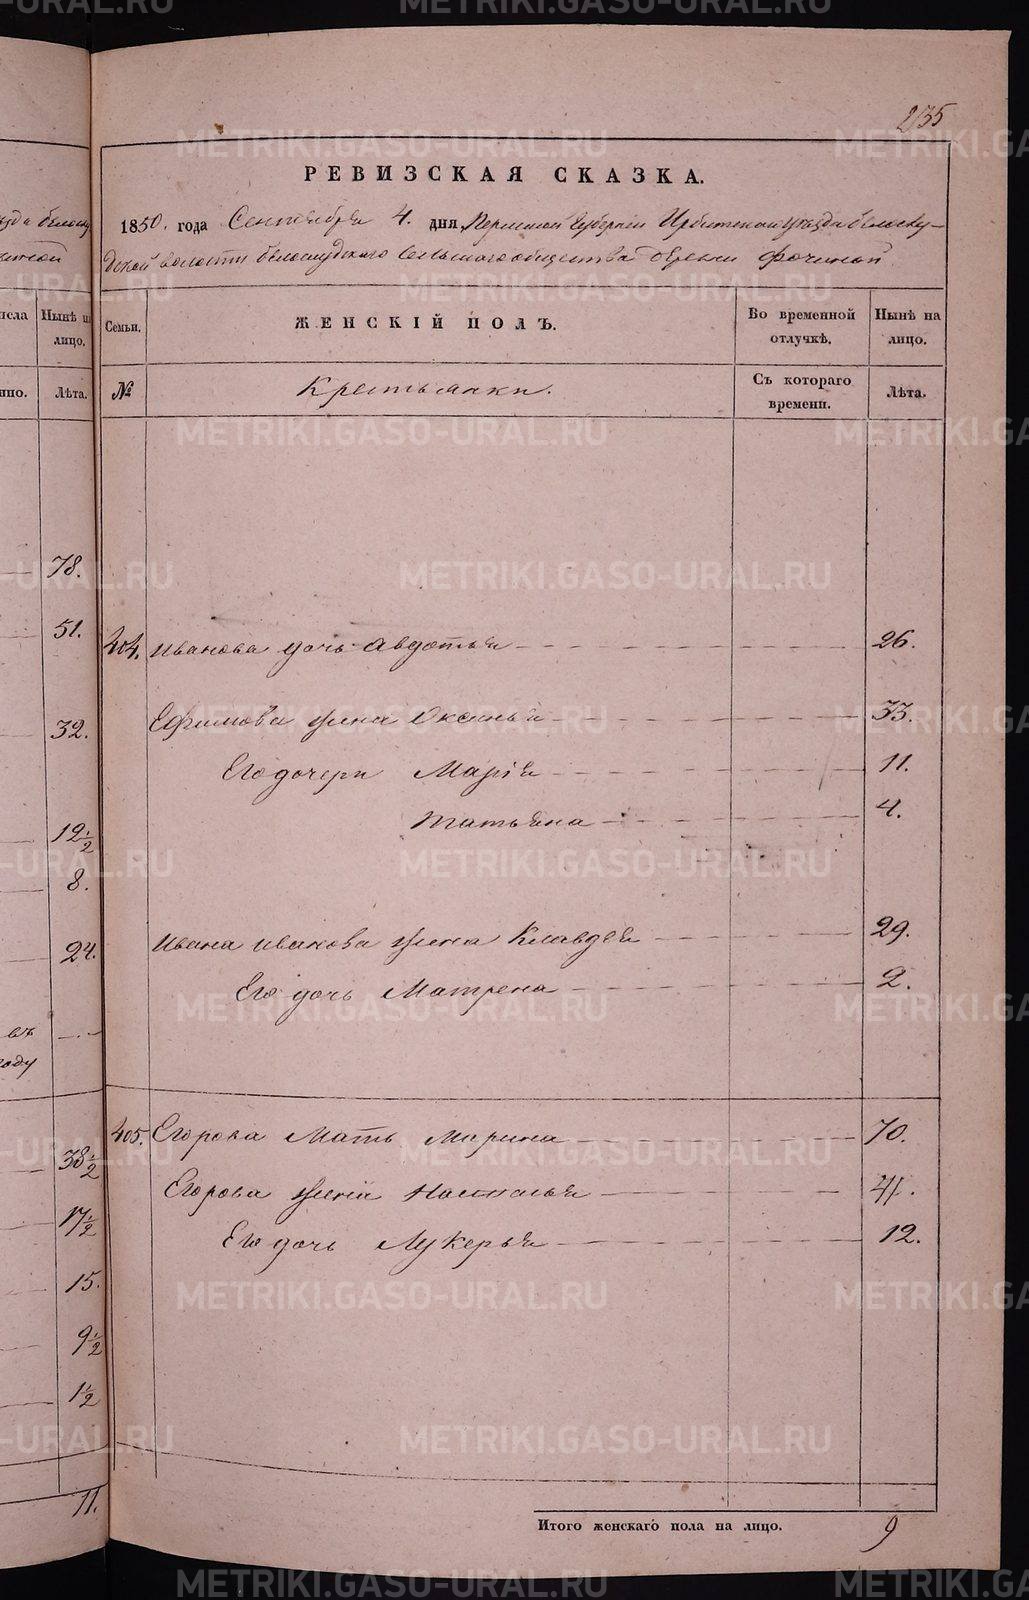 235
РЕВИЗСКАЯ СКАЗКА.
1850. года Сентября 4. дня Пермской Губернии Ирбитского уѣзда белослу-
дской волости белослудского Сельского общества деревни Фочиной
Семьи.
ЖЕНСКІЙ ПОЛЪ.
Во временной отлучкѣ.
Нынѣ на лицо.
№
Крестьянки.
Съ котораго времени.
Лѣта.
404. Иванова дочь Авдотья 26.
Ефимова жена Оксинья 33.
Его дочери Марія 11.
Татьяна 4.
Ивана Иванова жена Клавдея 29.
Его дочь Матрена 2.
405. Егорова Мать Марина 70.
Егорова жена Наталья 41.
Его дочь Лукерья 12.
Итого женскаго пола на лицо. 9
Нынѣ
лицо.
Лѣта.
78.
51.
32.
12½
8.
24.
въ
году
38½
17½
15.
9½
1½
11.
METRIKI.GASO-URAL.RU